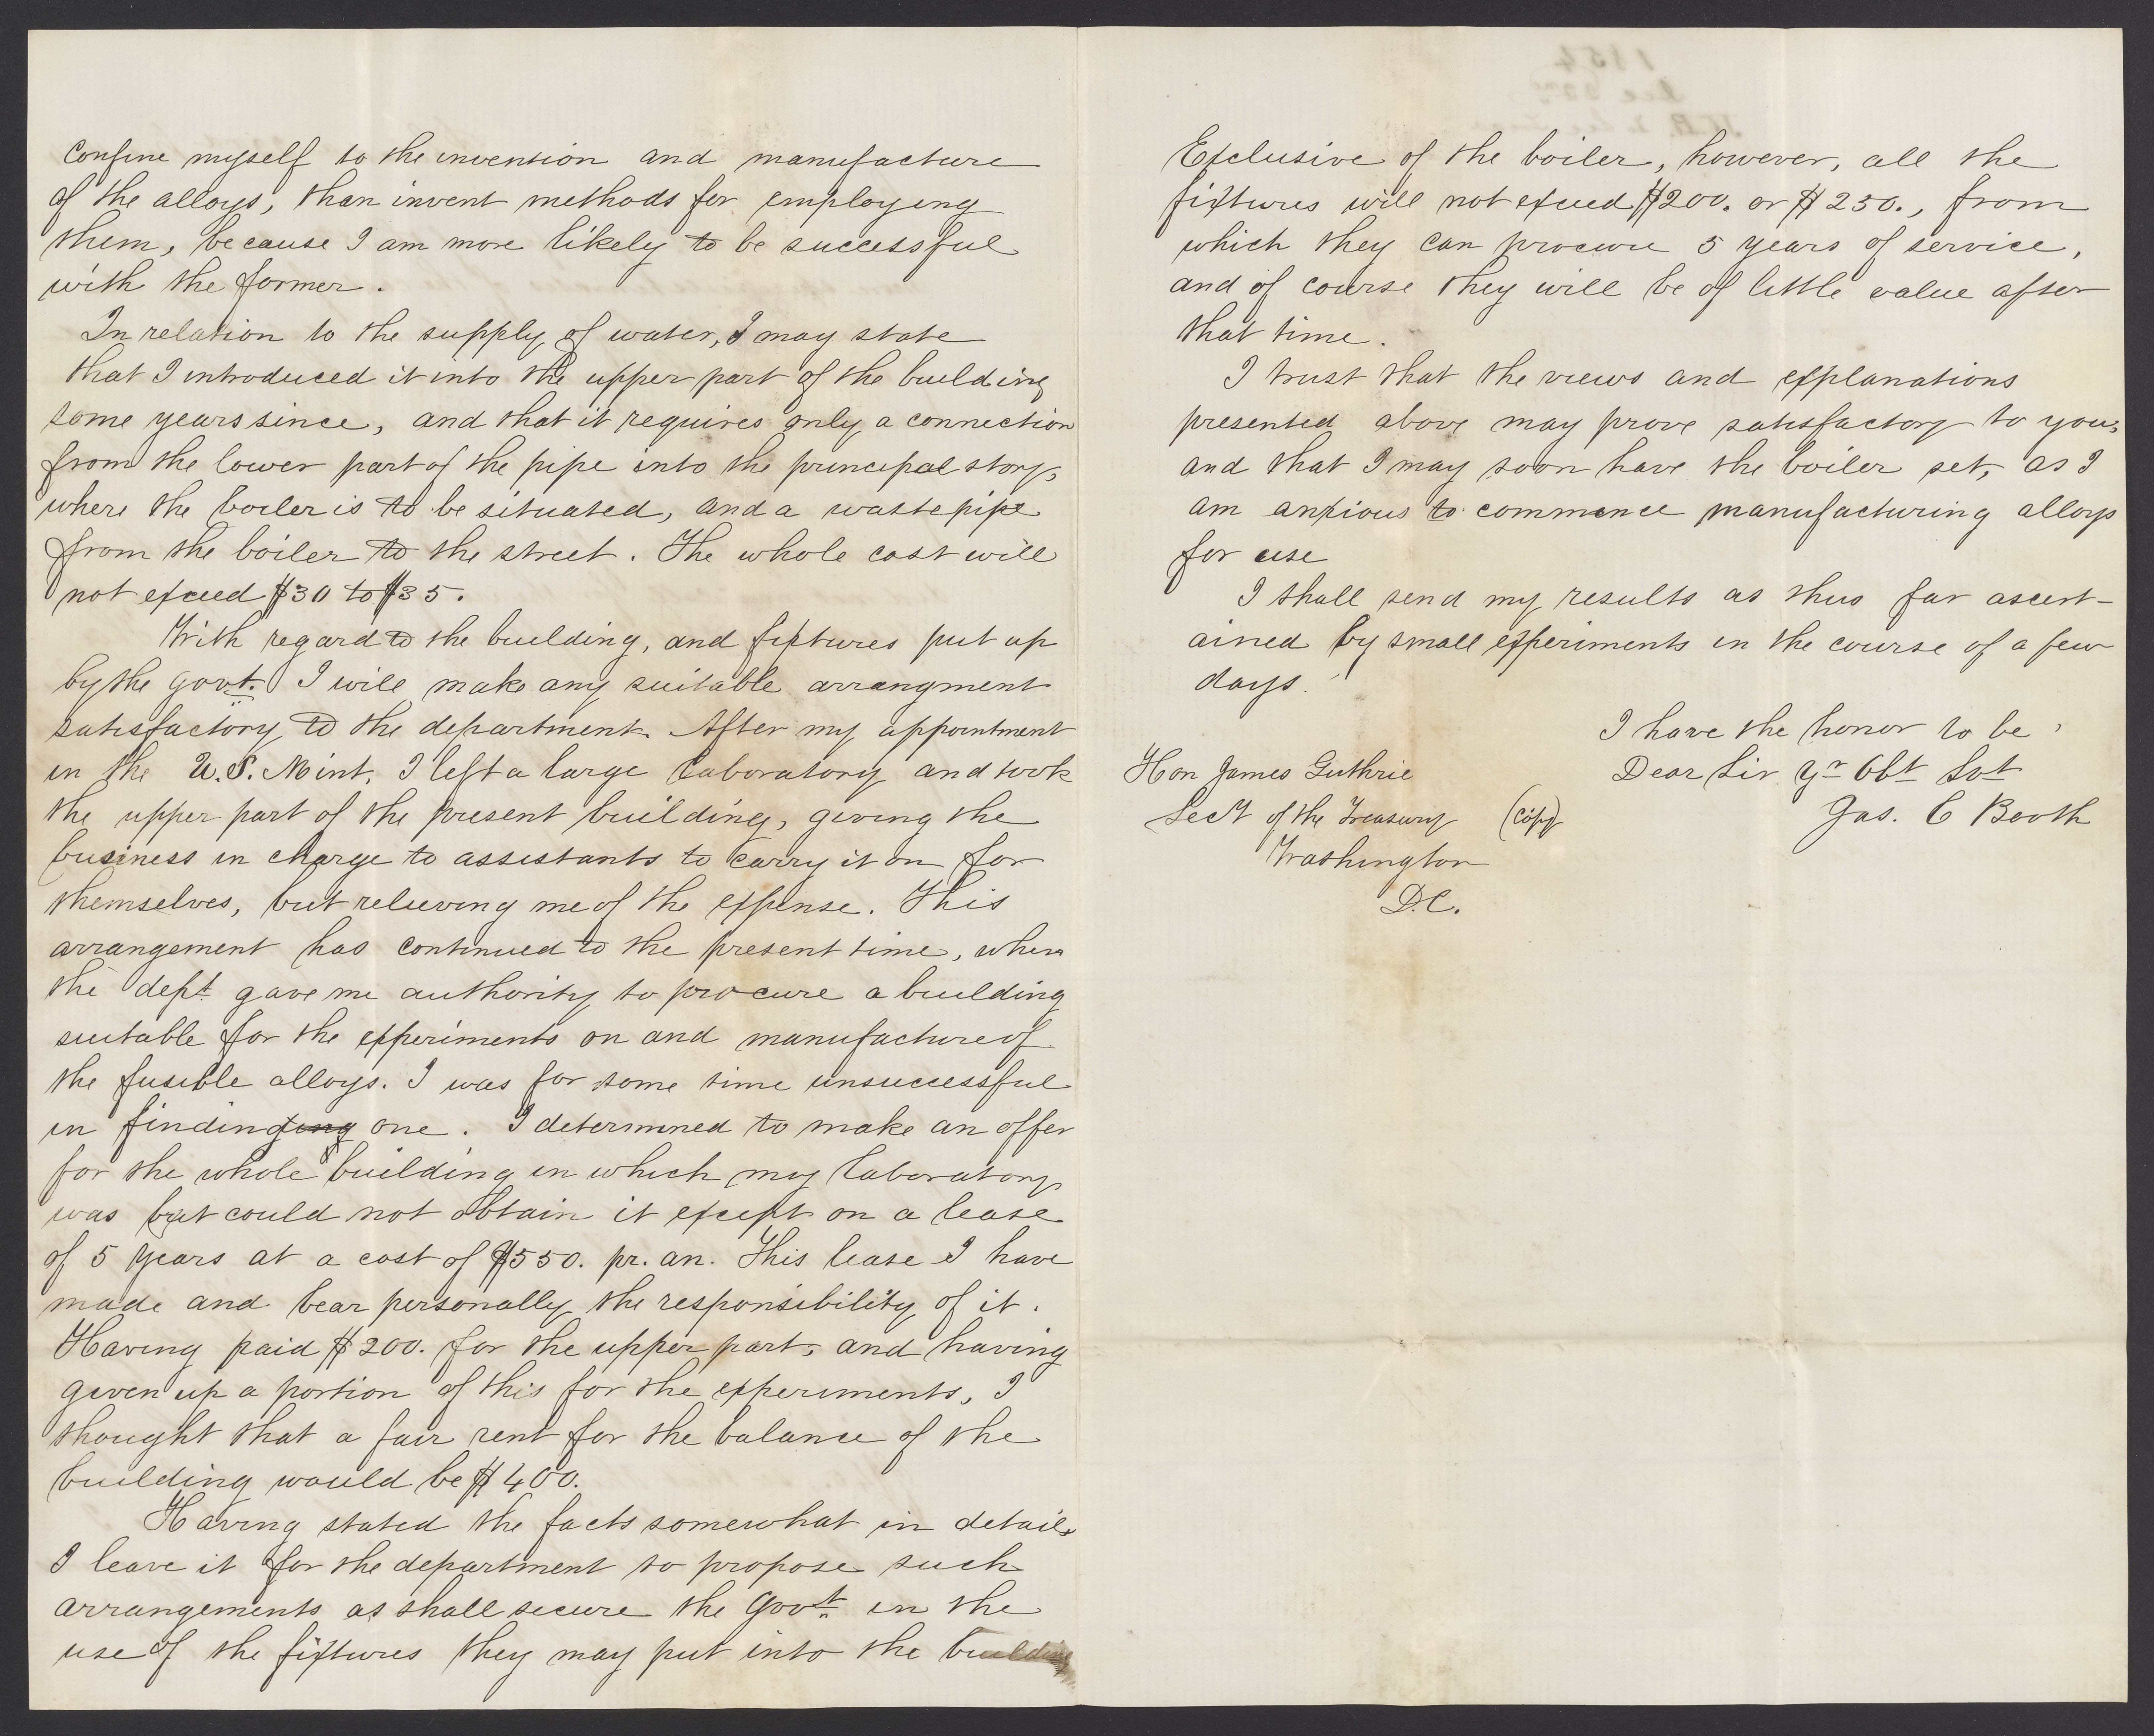 confine myself to the invention and manufacture
of the alloys, than invent methods for employing
them, because I am more likely to be successful
with the former.
In relation to the supply of water, I may state
that I introduced it into the upper part of the building
some years since, and that it requires only a connection
from the lower part of the pipe into the principal story,
where the boiler is to be situated, and a waste pipe
from the boiler to the street. The whole cost will
not exceed $30 to $35.
With regard to the building, and fixtures put up
by the govt. I will make any suitable arrangment
satisfactory to the department. After my appointment
in the U.S. Mint, I left a large laboratory and took
the upper part of the present building, giving the
business in charge to assistants to carry it on for
themselves, but relieving me of the expense. This
arrangement has continued to the present time, when
the dept. gave me authority to procure a building
suitable for the experiments on and manufacture of
the fusible alloys. I was for some time unsuccessful
in finding one. I determined to make an offer
for the whole building in which my laboratory
was but could not obtain it except on a lease
of 5 years at a cost of $550. pr. an. This lease I have
made and bear personally the responsibility of it.
Having paid $200. for the upper part, and having
given up a portion of this for the experiments, I
thought that a fair rent for the balance of the
building would be $400.
Having stated the facts somewhat in detail,
I leave it for the department to propose such
arrangements as shall secure the Govt. in the
use of the fixtures they may put into the building
1854
Exclusive of the boiler, however, all the
fixtures will not exceed $200. or $250., from
which they can procure 5 years of service,
and of course they will be of little value after
that time.
I trust that the views and explanations
presented above may prove satisfactory to you,
and that I may soon have the boiler set, as I
am anxious to commence manufacturing alloys
for use
I shall send my results as thus far ascert-
ained by small experiments in the course of a few
days.
I have the honor to be,
Dear Sir Yr Obt Svt
Jas. C Booth
Hon James Guthrie
Sect of the Treasury (Copy)
Washington
D.C.